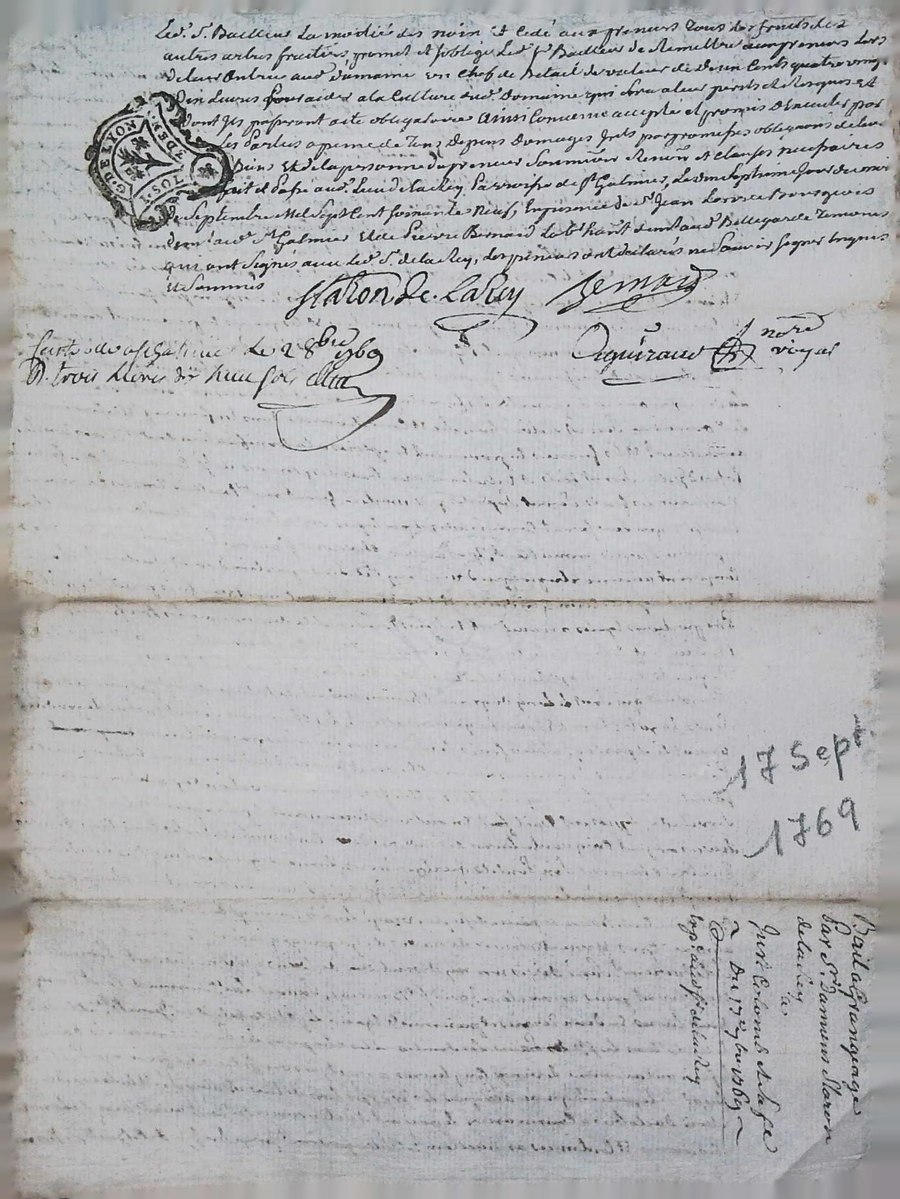 Led. S. Bailleur La moitié des noix Et cédé aux preneurs Tous les fruits des
autres arbres fruitiers, promet et soblige Led. Sr Bailleur de Remettre aux preneurs Lors
De leur Entrée aud. Domaine un chef de Betail de valeur de Deux Cents quatre vingt
livres pour aider a la Culture dud. Domaine qui sera a leur perils et Risques Et
dont ils passeront acte obligatoire Ainsi Convenu accepté et promis Executer par
Les Parties a peine de Tous Depens Domages par promesses obligations de leurs
Biens Et de la personne du preneur Soumission Renon et Clauses necessaires
fait et passé aud. Lieu de la Rey Parroisse de St Galmier, Le dix septieme Jour du mois
de Septembre Mil Sept Cent soixante Neuf, En presence de Sr Jean Bourgeois
St Galmier Et de Pierre Bernard habitant aud. Bellegarde Temoins
qui ont Signés avec Led. S. de la Rey, Les preneurs ont declarés ne Savoir Signer Enquis
Et Sommés
Staron de LaRey Bernard
Aguiraud nore royal
Le 2 8bre 1769
R. trois Livres dix neuf sols
G. DE LYON
17 Sept
1769
Bail a Grangeage
Par Sr Staron
de la Rey
a
Colomb et sa fe
Du 17 7bre 1769
Exp. aud. Sr de la Rey